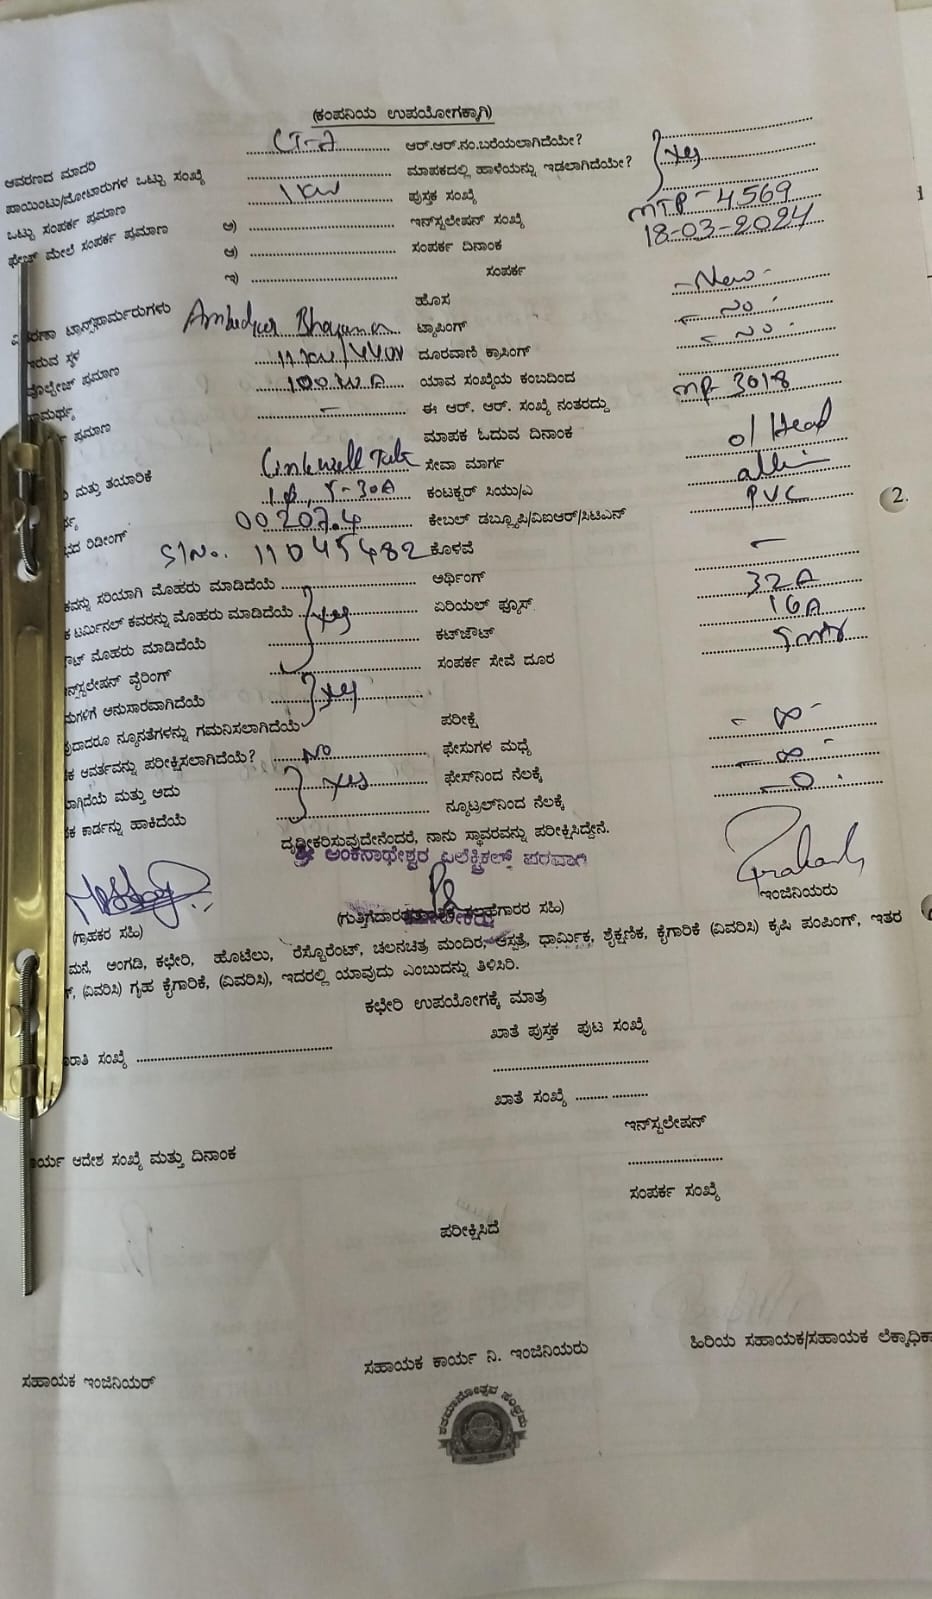 (ಕಂಪನಿಯ ಉಪಯೋಗಕ್ಕಾಗಿ)
ಆವರಣದ ಮಾದರಿ ಆರ್.ಆರ್.ನಂ.ಬರೆಯಲಾಗಿದೆಯೇ? Yes
ಪಾಯಿಂಟು/ಮೋಟಾರುಗಳ ಒಟ್ಟು ಸಂಖ್ಯೆ ಮಾಪಕದಲ್ಲಿ ಹಾಳೆಯನ್ನು ಇಡಲಾಗಿದೆಯೇ?
ಒಟ್ಟು ಸಂಪರ್ಕ ಪ್ರಮಾಣ 1 KW ಪುಸ್ತಕ ಸಂಖ್ಯೆ
ಫೇಜ್ ಮೇಲೆ ಸಂಪರ್ಕ ಪ್ರಮಾಣ ಅ) ಇನ್‌ಸ್ಟಲೇಷನ್ ಸಂಖ್ಯೆ MTP-4569
ಆ) ಸಂಪರ್ಕ ದಿನಾಂಕ 18-03-2024
ಇ) ಸಂಪರ್ಕ
ಟ್ರಾನ್ಸ್‌ಫಾರ್ಮರುಗಳು ಹೊಸ - New -
ಇರುವ ಸ್ಥಳ Bhavana ಟ್ಯಾಪಿಂಗ್ - No -
ವೋಲ್ಟೇಜ್ ಪ್ರಮಾಣ ದೂರವಾಣಿ ಕ್ರಾಸಿಂಗ್ - No -
100 ಯಾವ ಸಂಖ್ಯೆಯ ಕಂಬದಿಂದ
ಪ್ರಮಾಣ - ಈ ಆರ್. ಆರ್. ಸಂಖ್ಯೆ ನಂತರದ್ದು 3018
ಮಾಪಕ ಓದುವ ದಿನಾಂಕ
ಮತ್ತು ತಯಾರಿಕೆ ಸೇವಾ ಮಾರ್ಗ o/ Head
5-30A ಕಂಟಕ್ಟರ್ ಸಿಯು/ಎ
ರಿಡೀಂಗ್ 00207.4 ಕೇಬಲ್ ಡಬ್ಲೂಪಿ/ವಿಐಆರ್/ಸಿಟಿಎಸ್ PVC
S/No. 11045482 ಕೊಳವೆ
ಸರಿಯಾಗಿ ಮೊಹರು ಮಾಡಿದೆಯೆ ಅರ್ಥಿಂಗ್ -
ಟರ್ಮಿನಲ್ ಕವರನ್ನು ಮೊಹರು ಮಾಡಿದೆಯೆ Yes ಏರಿಯಲ್ ಫ್ಯೂಸ್ 32A
ಮೊಹರು ಮಾಡಿದೆಯೆ ಕಟ್‌ಔಟ್ 16A
ವೈರಿಂಗ್ ಸಂಪರ್ಕ ಸೇವೆ ದೂರ
ಅನುಸಾರವಾಗಿದೆಯೆ Yes
ನ್ಯೂನತೆಗಳನ್ನು ಗಮನಿಸಲಾಗಿದೆಯೆ ಪರೀಕ್ಷೆ
ಆವರ್ತವನ್ನು ಪರೀಕ್ಷಿಸಲಾಗಿದೆಯೆ? No ಫೇಸುಗಳ ಮಧ್ಯೆ - ∞ -
ಮತ್ತು ಅದು Yes ಫೇಸ್‌ನಿಂದ ನೆಲಕ್ಕೆ - ∞ -
ಕಾರ್ಡನ್ನು ಹಾಕಿದೆಯೆ ನ್ಯೂಟ್ರಲ್‌ನಿಂದ ನೆಲಕ್ಕೆ - 0 -
ದೃಢೀಕರಿಸುವುದೇನೆಂದರೆ, ನಾನು ಸ್ಥಾವರವನ್ನು ಪರೀಕ್ಷಿಸಿದ್ದೇನೆ.
ಶ್ರೀ ಅಂಕನಾಥೇಶ್ವರ ಎಲೆಕ್ಟ್ರಿಕಲ್ಸ್ ಪರವಾಗಿ
(ಗ್ರಾಹಕರ ಸಹಿ) ಸಹಿ) ಇಂಜಿನಿಯರು
ಮನೆ, ಅಂಗಡಿ, ಕಛೇರಿ, ಹೊಟೆಲು, ರೆಸ್ಟೊರೆಂಟ್, ಚಲನಚಿತ್ರ ಮಂದಿರ, ಆಸ್ಪತ್ರೆ, ಧಾರ್ಮಿಕ, ಶೈಕ್ಷಣಿಕ, ಕೈಗಾರಿಕೆ (ವಿವರಿಸಿ) ಕೃಷಿ ಪಂಪಿಂಗ್, ಇತರ
(ವಿವರಿಸಿ) ಗೃಹ ಕೈಗಾರಿಕೆ, (ವಿವರಿಸಿ), ಇದರಲ್ಲಿ ಯಾವುದು ಎಂಬುದನ್ನು ತಿಳಿಸಿರಿ.
ಕಛೇರಿ ಉಪಯೋಗಕ್ಕೆ ಮಾತ್ರ
ಖಾತೆ ಪುಸ್ತಕ ಪುಟ ಸಂಖ್ಯೆ
ಸಂಖ್ಯೆ
ಖಾತೆ ಸಂಖ್ಯೆ
ಇನ್‌ಸ್ಟಲೇಷನ್
ಆದೇಶ ಸಂಖ್ಯೆ ಮತ್ತು ದಿನಾಂಕ
ಸಂಪರ್ಕ ಸಂಖ್ಯೆ
ಪರೀಕ್ಷಿಸಿದೆ
ಸಹಾಯಕ ಇಂಜಿನಿಯರ್ ಸಹಾಯಕ ಕಾರ್ಯ ನಿ. ಇಂಜಿನಿಯರು ಹಿರಿಯ ಸಹಾಯಕ/ಸಹಾಯಕ
ಶತಮಾನೋತ್ಸವ ಸಂಭ್ರಮ
2.